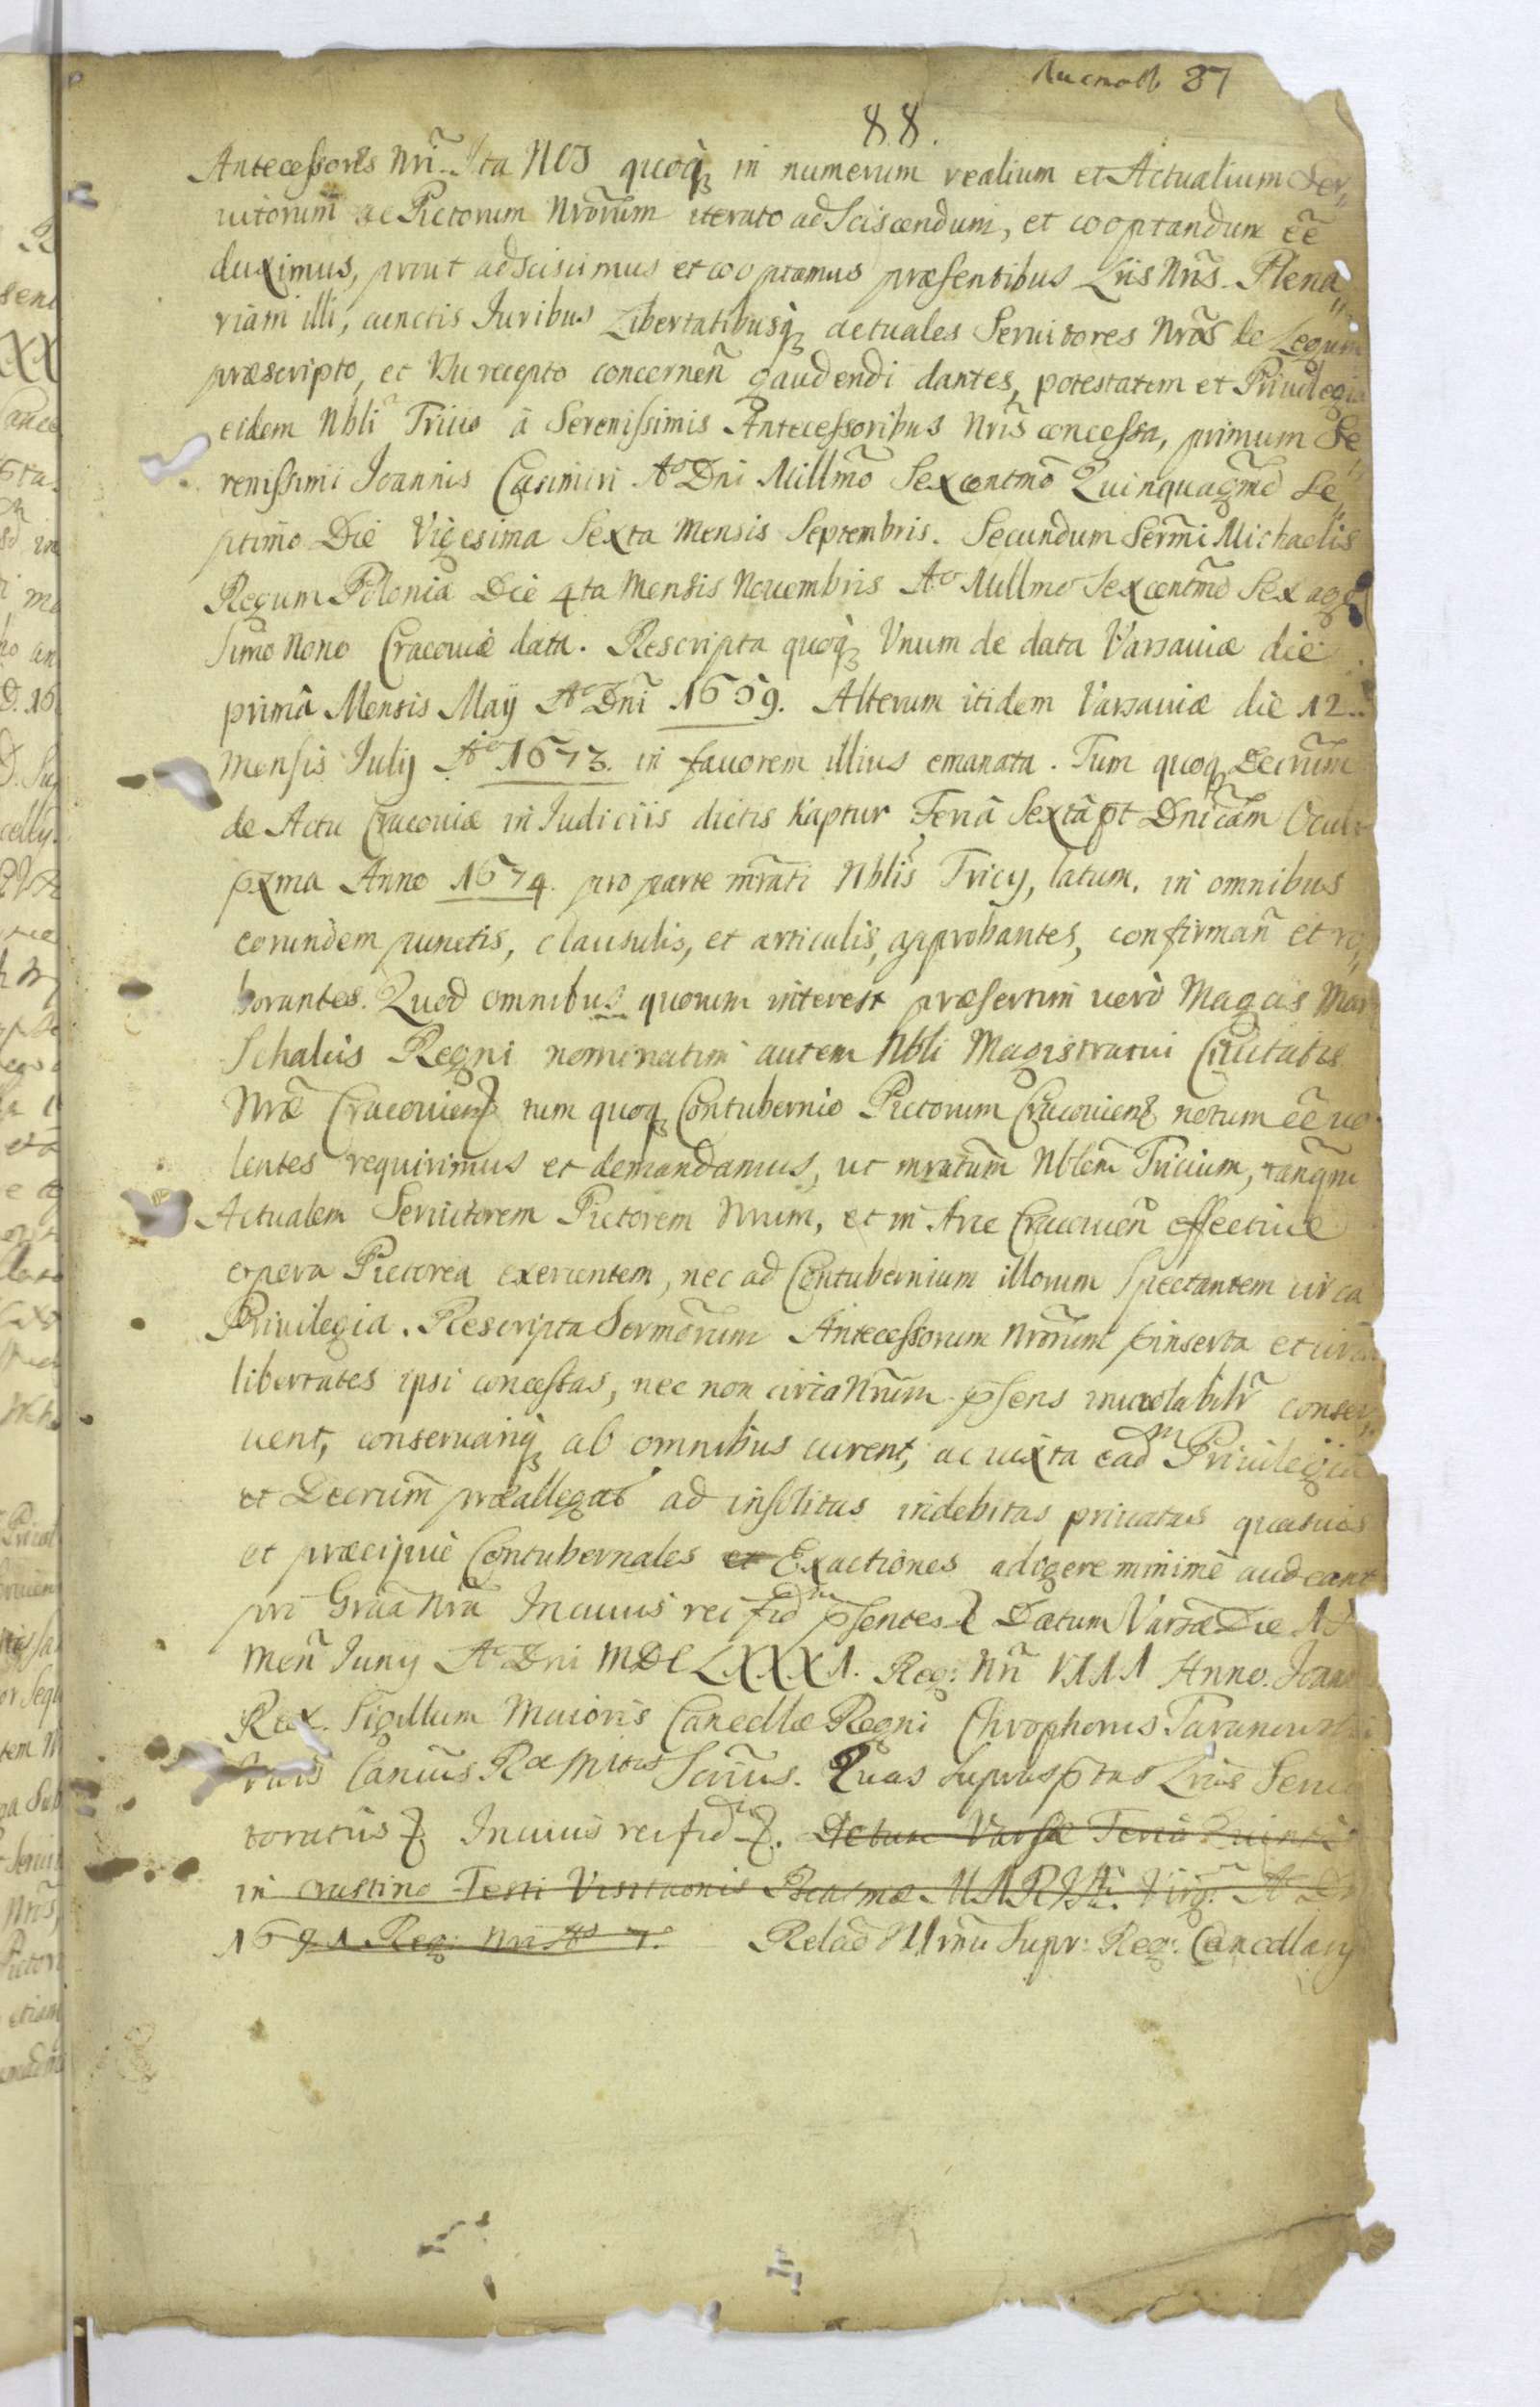 Листовъ 87
88.
Antecessores Nrĩ. Ita NOS quoq̃ in numerum realium et Actualium Ser„
uitorum ac Pictorum Nrorum iterato adsciscendum, et cooptandum eẽ
duximus, prout adsciscimus et cooptamus præsentibus Lrîs Nrîs. Plena„
riam illi, cunctis Iuribus Libertatibusq̃ actuales Seruitores Nros̃ de Legum
præscripto, et Vsu recepto concernen̄ gaudendi dantes, potestatem et Priuilegia
eidem Nbli Tricio à Serenissimis Antecessoribus Nrîs concessa, primum Se„
renissimi Ioannis Casimiri Aº Dni Millmo Sexcentmõ Quinquagmõ Se„
ptimo Die Vigesima Sexta Mensis Septembris. Secundum Sermi Michaelis
Regum Poloniæ Die 4ta Mensis Nouembris Aº Millmo Sexcentmõ Sexage
simo Nono Cracouiæ data. Rescripta quoq̃ Vnum de data Varsauiæ die
primâ Mensis Maÿ Aº Dni 1659. Alterum itidem Varsauiæ die 12
Mensis Iulij Aº 1673. in fauorem illius emanata. Tum quoq̃ Decrum̃
de Actu Cracouiæ in Iudiciis dictis Kaptur Feriâ Sextâ pt Dnicam̃ Oculi
pxma Anno 1674. pro parte mrati Nblis Tricÿ, latum, in omnibus
eorundem punctis, clausulis, et articulis, approbantes, confirman̄ et ro„
borantes. Quod omnibus quorum interest præsertim uerò Magcis Mar
Schalcis Regni nominatim autem Nbli Magistratui Ciuitatis
Nræ Cracouien̄ tum quoq̃ Contubernio Pictorum Cracouien̄ notum eẽ uo
lentes requirimus et demandamus, ut mratum̃ Nblem̃ Tricium, tanq̃m
Actualem Seruitorem Pictorem Nrum, et in Arce Cracouien̄ effectiue
opera Pictorea exercentem, nec ad Contubernium illorum Spectantem circa
Priuilegia. Rescripta Sermorum Antecessorum Nrorum pinserta et circa
libertates ipsi concessas, nec non circa Nrum p̃sens inuiolabilr̃ conser„
uent, conseruariq̃ ab omnibus curent, ac iuxta eadm Priuilegia
et Decrum̃ præallegat ad insolitas indebitas priuatas quasuis
et præcipuè Contubernales et Exactiones adigere minimè audeant
pro Gratia Nra In cuius rei fidm p̃sentes Datum Varsæ Die
Men̄ Iunÿ Aº Dni MDCLXXXI. Reg: Nri VIII Anno. Ioann
Rex. Sigillum Maioris Cancellæ Regni Chrophorus Taranowski
Canus Ræ Mttis Scrius. Quas supras p̃tas Lrãs Serui
toratus In cuius rei fidm. Datum Varsæ Feriâ Quintâ
in crastino Festi Visitaonis Beatmæ MARIÆ Virg: Aº Dñ
1681 Reg: Nri Aº 7. Relaõ Illrmi Supr: Reg: Cancellarÿ